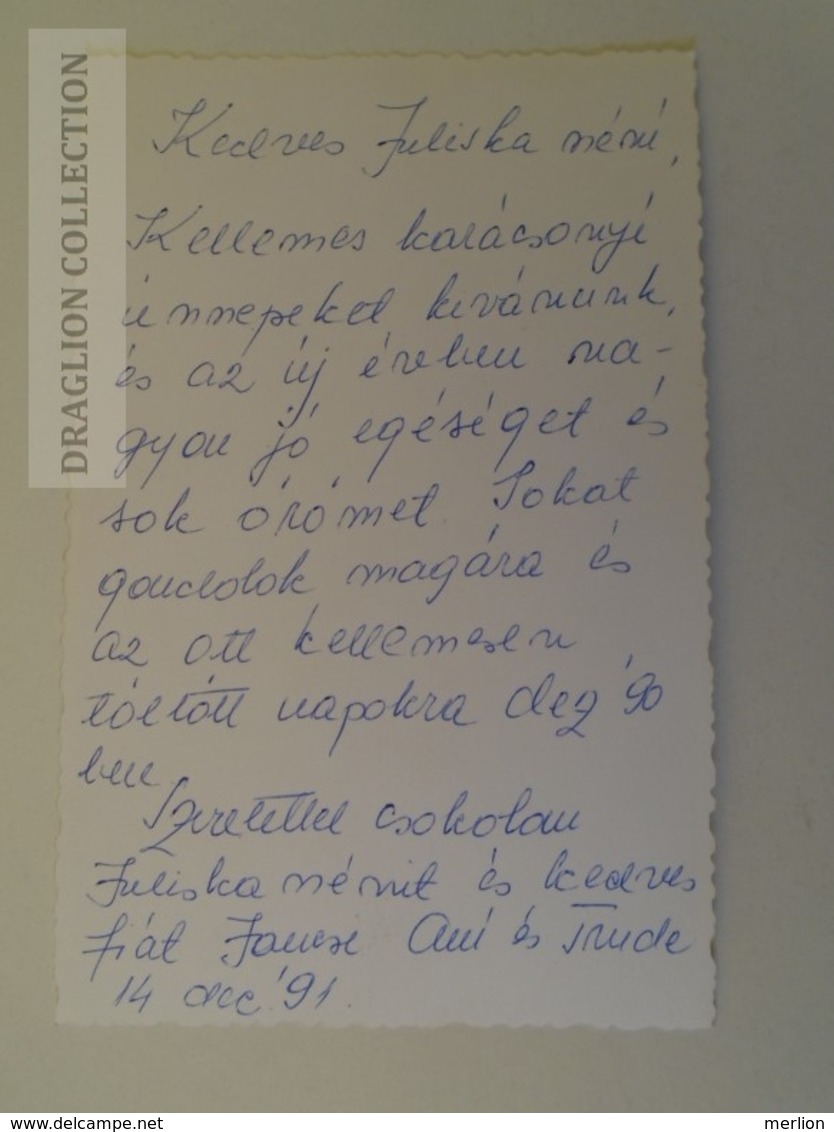 DRAGLION COLLECTION
Kedves Juliska néni,
Kellemes karácsonyi
ünnepeket kivánunk,
és az új évben na-
gyon jó egéséget és
sok örömet Sokat
gondolok magára és
az ott kellemesen
töltött napokra dez '90
ben
Szeretettel csokolau
Juliska nénit és kedves
fiát Ani és Trude
14 dec '91.
www.delcampe.net
merlion